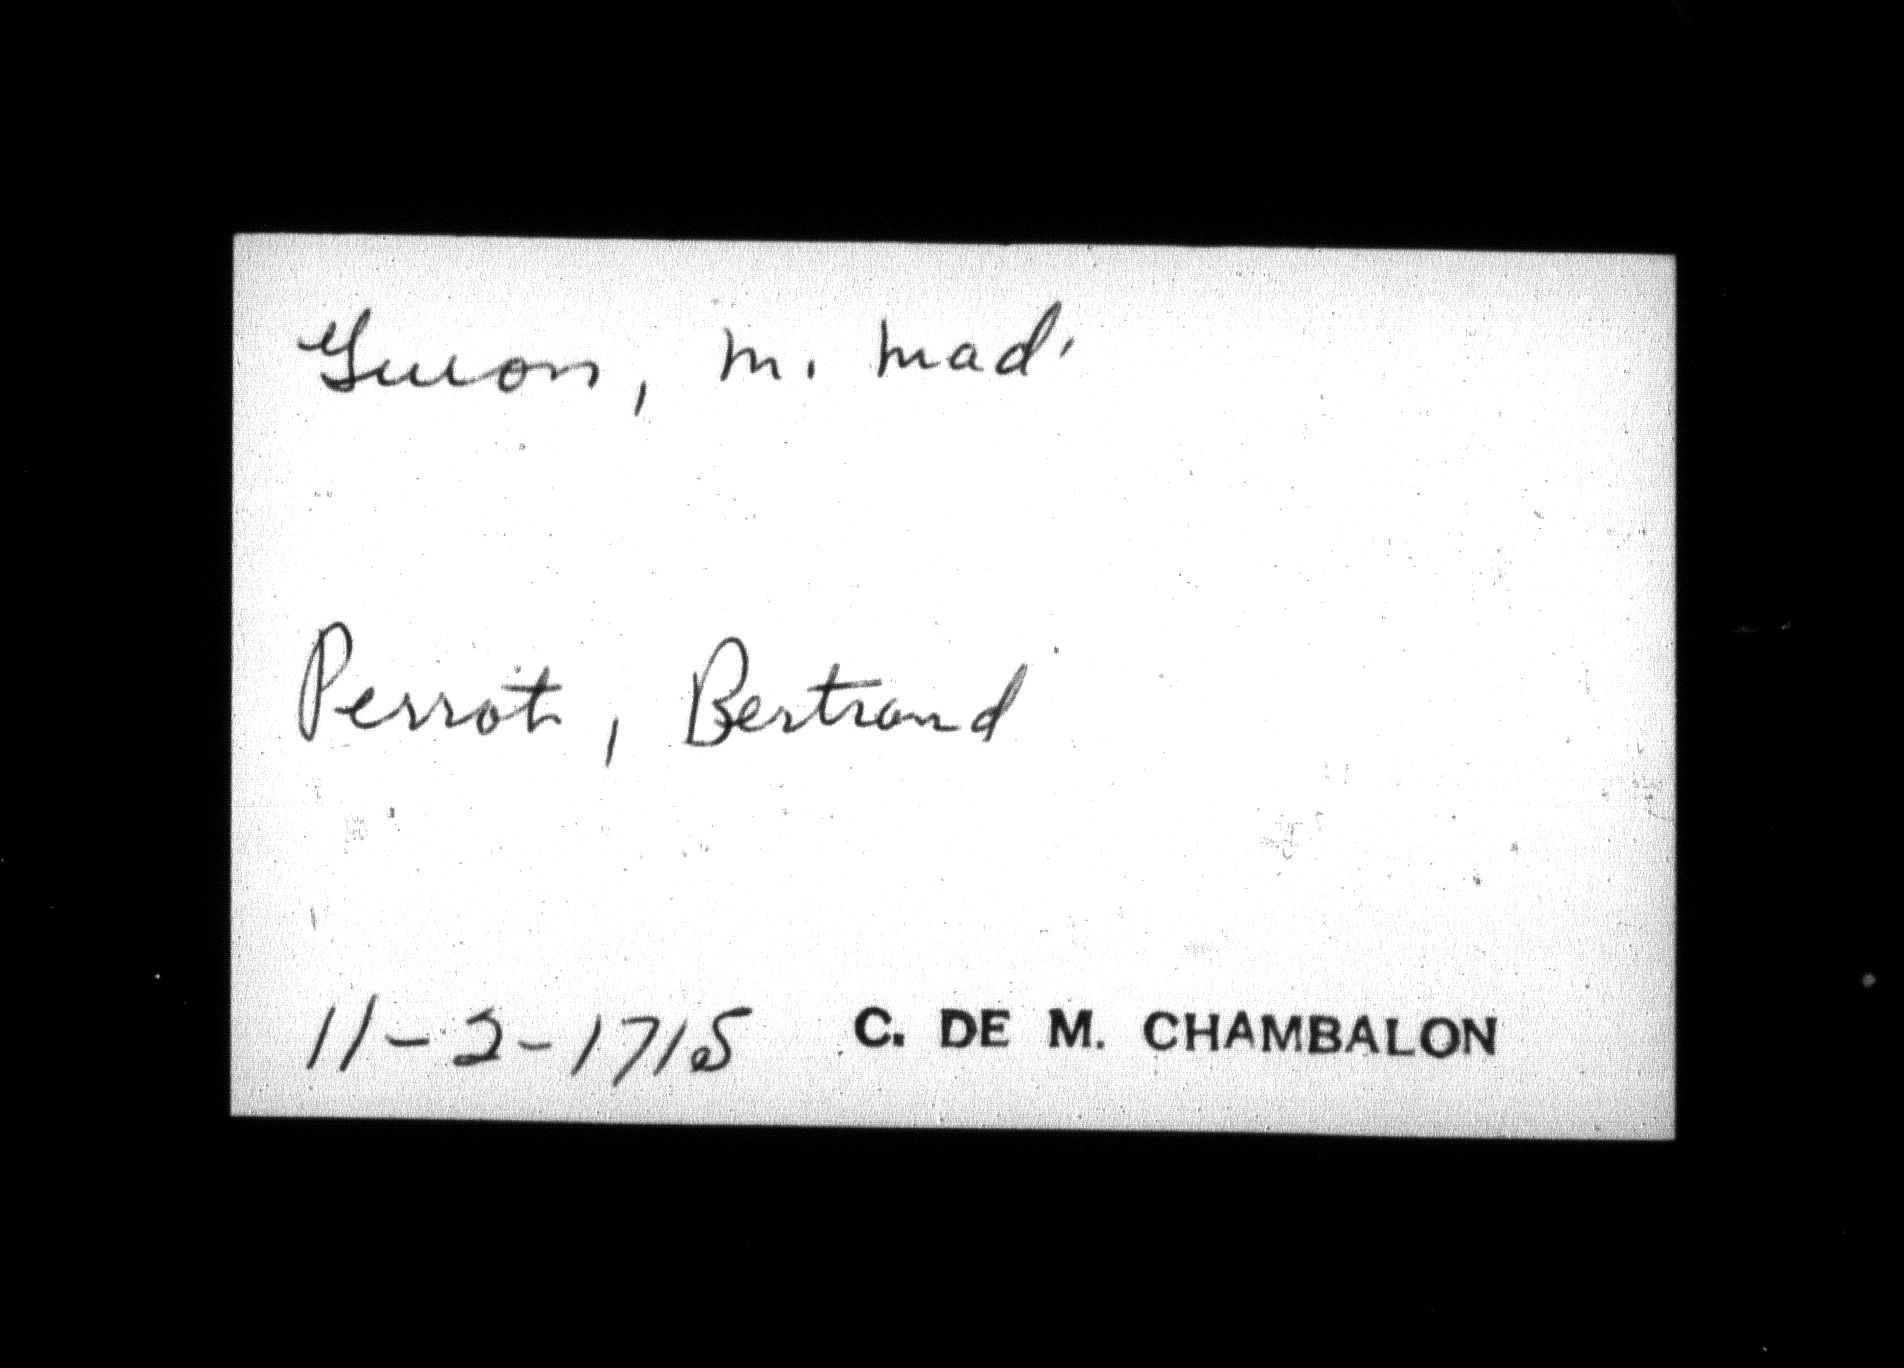 Guion, M. Mad'
Perrot, Bertrand
11-2-1715 C. DE M. CHAMBALON